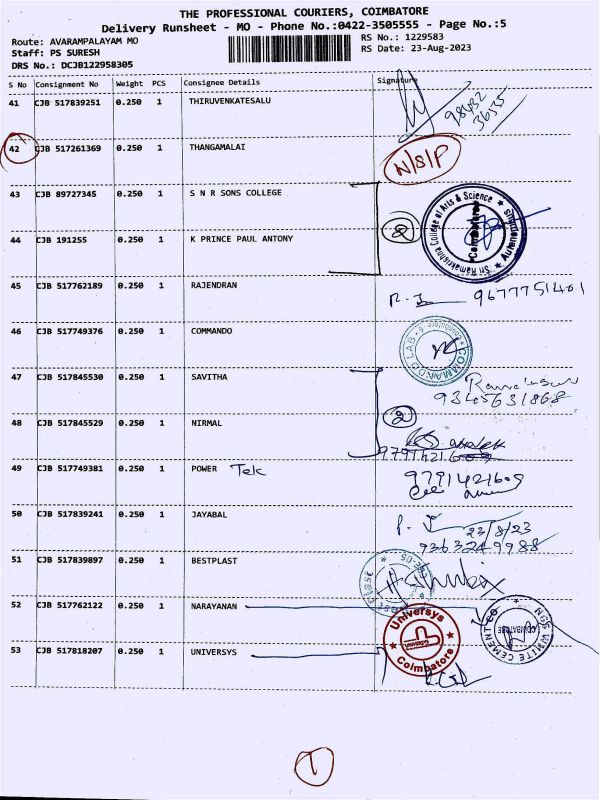 THE PROFESSIONAL COURIERS, COIMBATORE
Delivery Runsheet - MO - Phone No.:0422-3505555 - Page No.:5
Route: AVARAMPALAYAM MO
RS No.: 1229583
Staff: PS SURESH
RS Date: 23-Aug-2023
DRS No.: DCJB122958305
S No Consignment No Weight PCS Consignee Details Signature
41 CJB 517839251 0.250 1 THIRUVENKATESALU
98432
42 CJB 517261369 0.250 1 THANGAMALAI N/S/P
43 CJB 89727345 0.250 1 S N R SONS COLLEGE
2
Sri Ramakrishna College of Arts & Science
Coimbatore
Autonomous
44 CJB 191255 0.250 1 K PRINCE PAUL ANTONY
45 CJB 517762189 0.250 1 RAJENDRAN 9677751401
46 CJB 517749376 0.250 1 COMMANDO
COMMANDO LAB
47 CJB 517845530 0.250 1 SAVITHA
9345631868
2
48 CJB 517845529 0.250 1 NIRMAL
49 CJB 517749381 0.250 1 POWER Tek 9791421609
50 CJB 517839241 0.250 1 JAYABAL 23/8/23
9363249988
51 CJB 517839897 0.250 1 BESTPLAST
52 CJB 517762122 0.250 1 NARAYANAN
NGS WHITE CEMENT CO
COIMBATORE
53 CJB 517818207 0.250 1 UNIVERSYS
Universys
Coimbatore
1